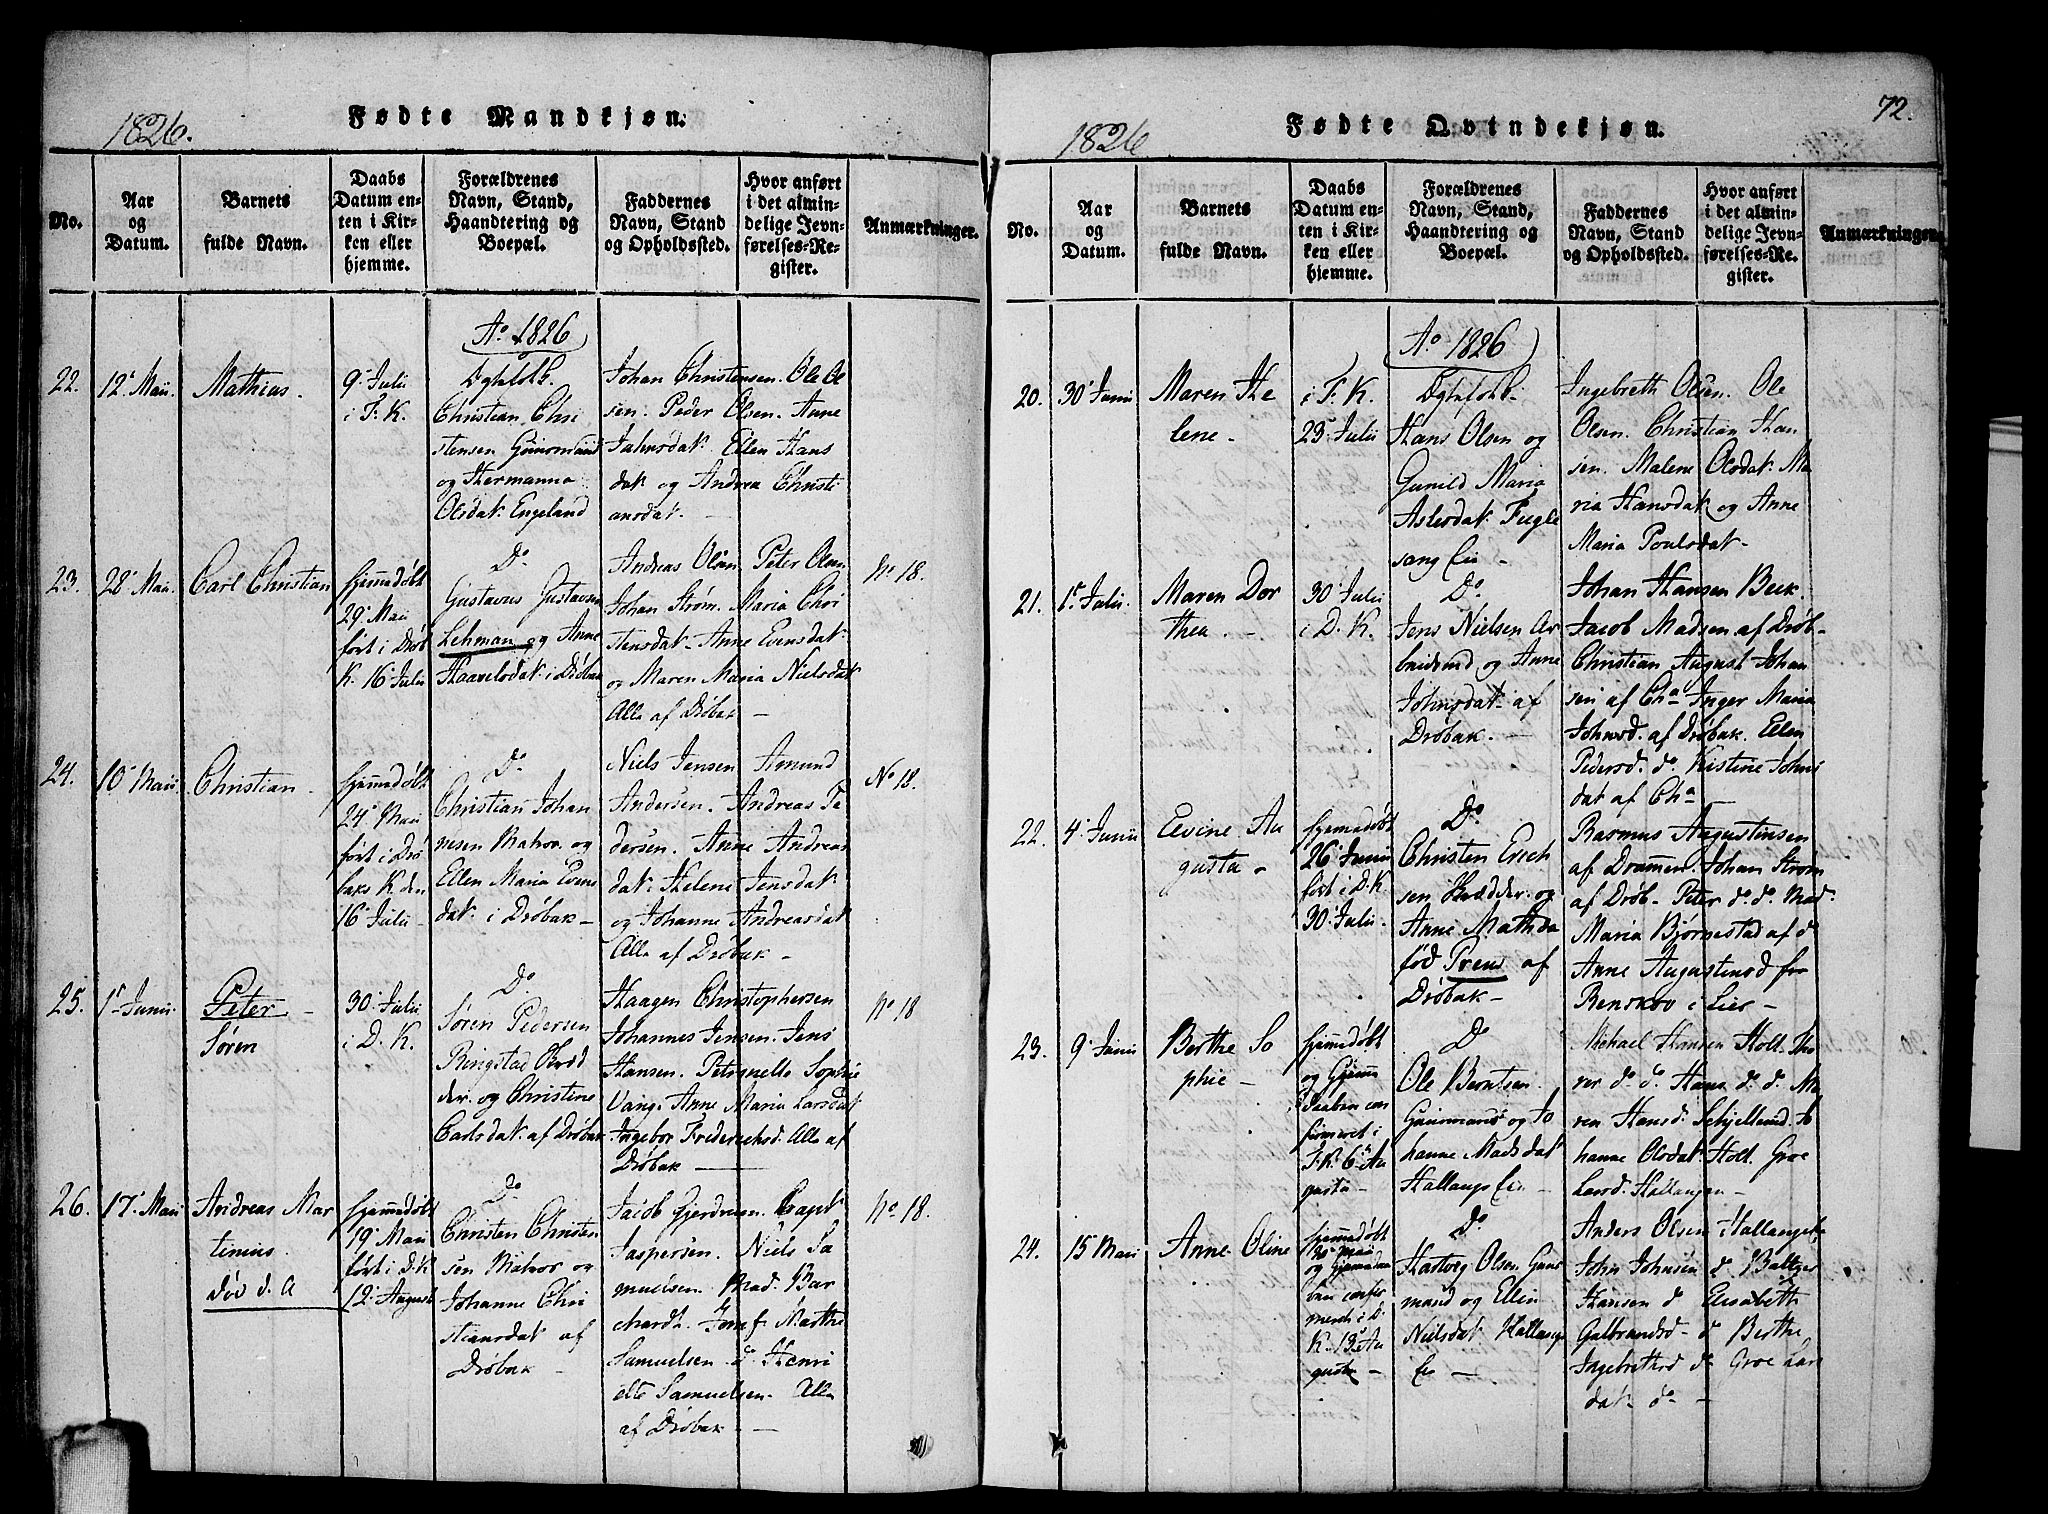 1826.
Fødte Mandkjøn.
No.
Aar
og
Datum.
Barnets
fulde Navn.
Daabs
Datum en-
ten i Kir-
ken eller
hjemme.
Forældrenes
Navn, Stand,
Haandtering og
Boepæl.
Faddernes
Navn, Stand
og Opholdssted.
Hvor anført
i det almin-
delige Jevn-
førelses-Re-
gister.
Anmærkninger.
Ao 1826
22.
12' Maii
Mathias.
9' Julii
i F. K.
Ægtefolk.
Christian Chri
stensen
og Hermanna
Olsdat. Engeland
Johan Christensen. Ole Ol
sen. Peder Olsen. Anne
Jahnsdat. Ellen Hans
dat. og Andrea Christi
ansdat. —
23.
28' Maii
Carl Christian
hjemmedøbt
29' Maii
ført i Drøb
K. 16' Julii
Do
Gustavus Gustavsen
Lehman og Anne
Haavelsdat. i Drøbak
Andreas Olsen Peter Olsen
Johan Strøm. Maria Chri
stensdat. Anne Evensdat.
og Maren Maria Nielsdat
Alle af Drøbak —
No 18.
24.
10' Maii
Christian.
hjemmedøbt
24' Maii
ført i Drø
baks K. den
16' Julii
Do
Christian Johan
nesen Matros og
Ellen Maria Evens
dat. i Drøbak —
Niels Jensen Amund
Andersen. Andreas Pe
dersen. Anne Andreas
dat. Helene Jensdat.
og Johanne Andreasdat
Alle af Drøbak —
No 18.
25.
1' Junii.
Peter —
Søren
30' Julii
i D. K.
Do
Søren Pedersen
Ringstad Kræd
der. og Christine
Carlsdat. af Drøbak
Haagen Christophersen
Johannes Jensen. Jens
Hansen. Petronelle Sophie
Vang. Anne Maria Larsdat
Ingebor Frideriched. Alle af
Drøbak —
No 18
26.
17' Maii
Andreas Mar
tinius.
død d. A
hjemmedøbt
19' Maii
ført i D.K
12' August
Do
Christen Christen
sen Matros og
Johanne Chri
stiansdat. af
Drøbak —
Jacob Gjerdrum. Capt
Jaspersen. Niels Sa
muelsen. Mad. Bor
chardt. Jomf. Marthe
Samuelsen. do Henri
ette Samuelsen. Alle
af Drøbak —
No 18.
72.
1826
Fødte Qvindekjøn.
No.
Aar
og
Datum.
Barnets
fulde Navn.
Daabs
Datum en-
ten i Kir-
ken eller
hjemme.
Forældrenes
Navn, Stand,
Haandtering og
Boepæl.
Faddernes
Navn, Stand
og Opholdssted.
Hvor anført
i det almin-
delige Jevn-
førelses-Re-
gister.
Anmærkninger.
Ao 1826
20.
30' Junii
Maren He
lene —
i F. K.
23' Julii
Ægtefolk.
Hans Olsen og
Gunild Maria
Aslesdat. Fugle
sang Eie —
Ingebreth Olsen. Ole
Olsen. Christian Han
sen. Malene Olsdat. Ma
ria Hansdat. og Anne
Maria Poulsdat.
21.
1' Julii.
Maren Dor
thea. —
30' Julii
i D. K.
Do
Jens Nielsen Ar
beidsmd og Anne
Johnsdat. af
Drøbak. —
Johan Hansen Beck.
Jacob Madsen af Drøb-
Christian August Johan
sen af Cha Inger Maria
Johnsd. af Drøbak. Ellen
Pedersd. do Kistine Johns
dat af Cha —
22.
4' Junii
Elvine Au
gusta —
hjemmedøbt
26' Junii
ført i D.K.
30' Julii
Do
Christen Erich
sen Krædder. og
Anne Mathia
fød Prem af
Drøbak —
Rasmus Augustinsen
af Drammen. Johan Strøm
af Drøb- Peter do do Mad.
Maria Bjørnestad af do
Anne Augustinsd fra
Renskov i Lier —
23.
9' Junii
Berthe So
phie —
hjemmedøbt
og Hjemme
daaben con
firmeret i
F. K. 6' Au
gusti —
Do
Ole Berntsen.
Gaurmands og Jo
hanne Madsdat
Hallangs Eie —
Michael Hansen Holt. Tho
rer do do Hans do do Ma
ren Hansd. Schjellerud. Jo
hanne Olsdat. Holt. Groe
Larsd. Hallangen —
24.
15' Maii
Anne Oline
hjemmedøbt
og hjemmedaa
ben confir
meret i D.
K. 13' Au
gusti —
Do
Hartvig Olsen Gaur
mand og Ellen
Nielsdat Hallangs
Eie —
Anders Olsen i Hallanget.
John Johnsen do Baltzer
Hansen do Elisabeth
Gulbrandsd — do Berthe
Ingebrethsd do Groe Lars
dat. do —